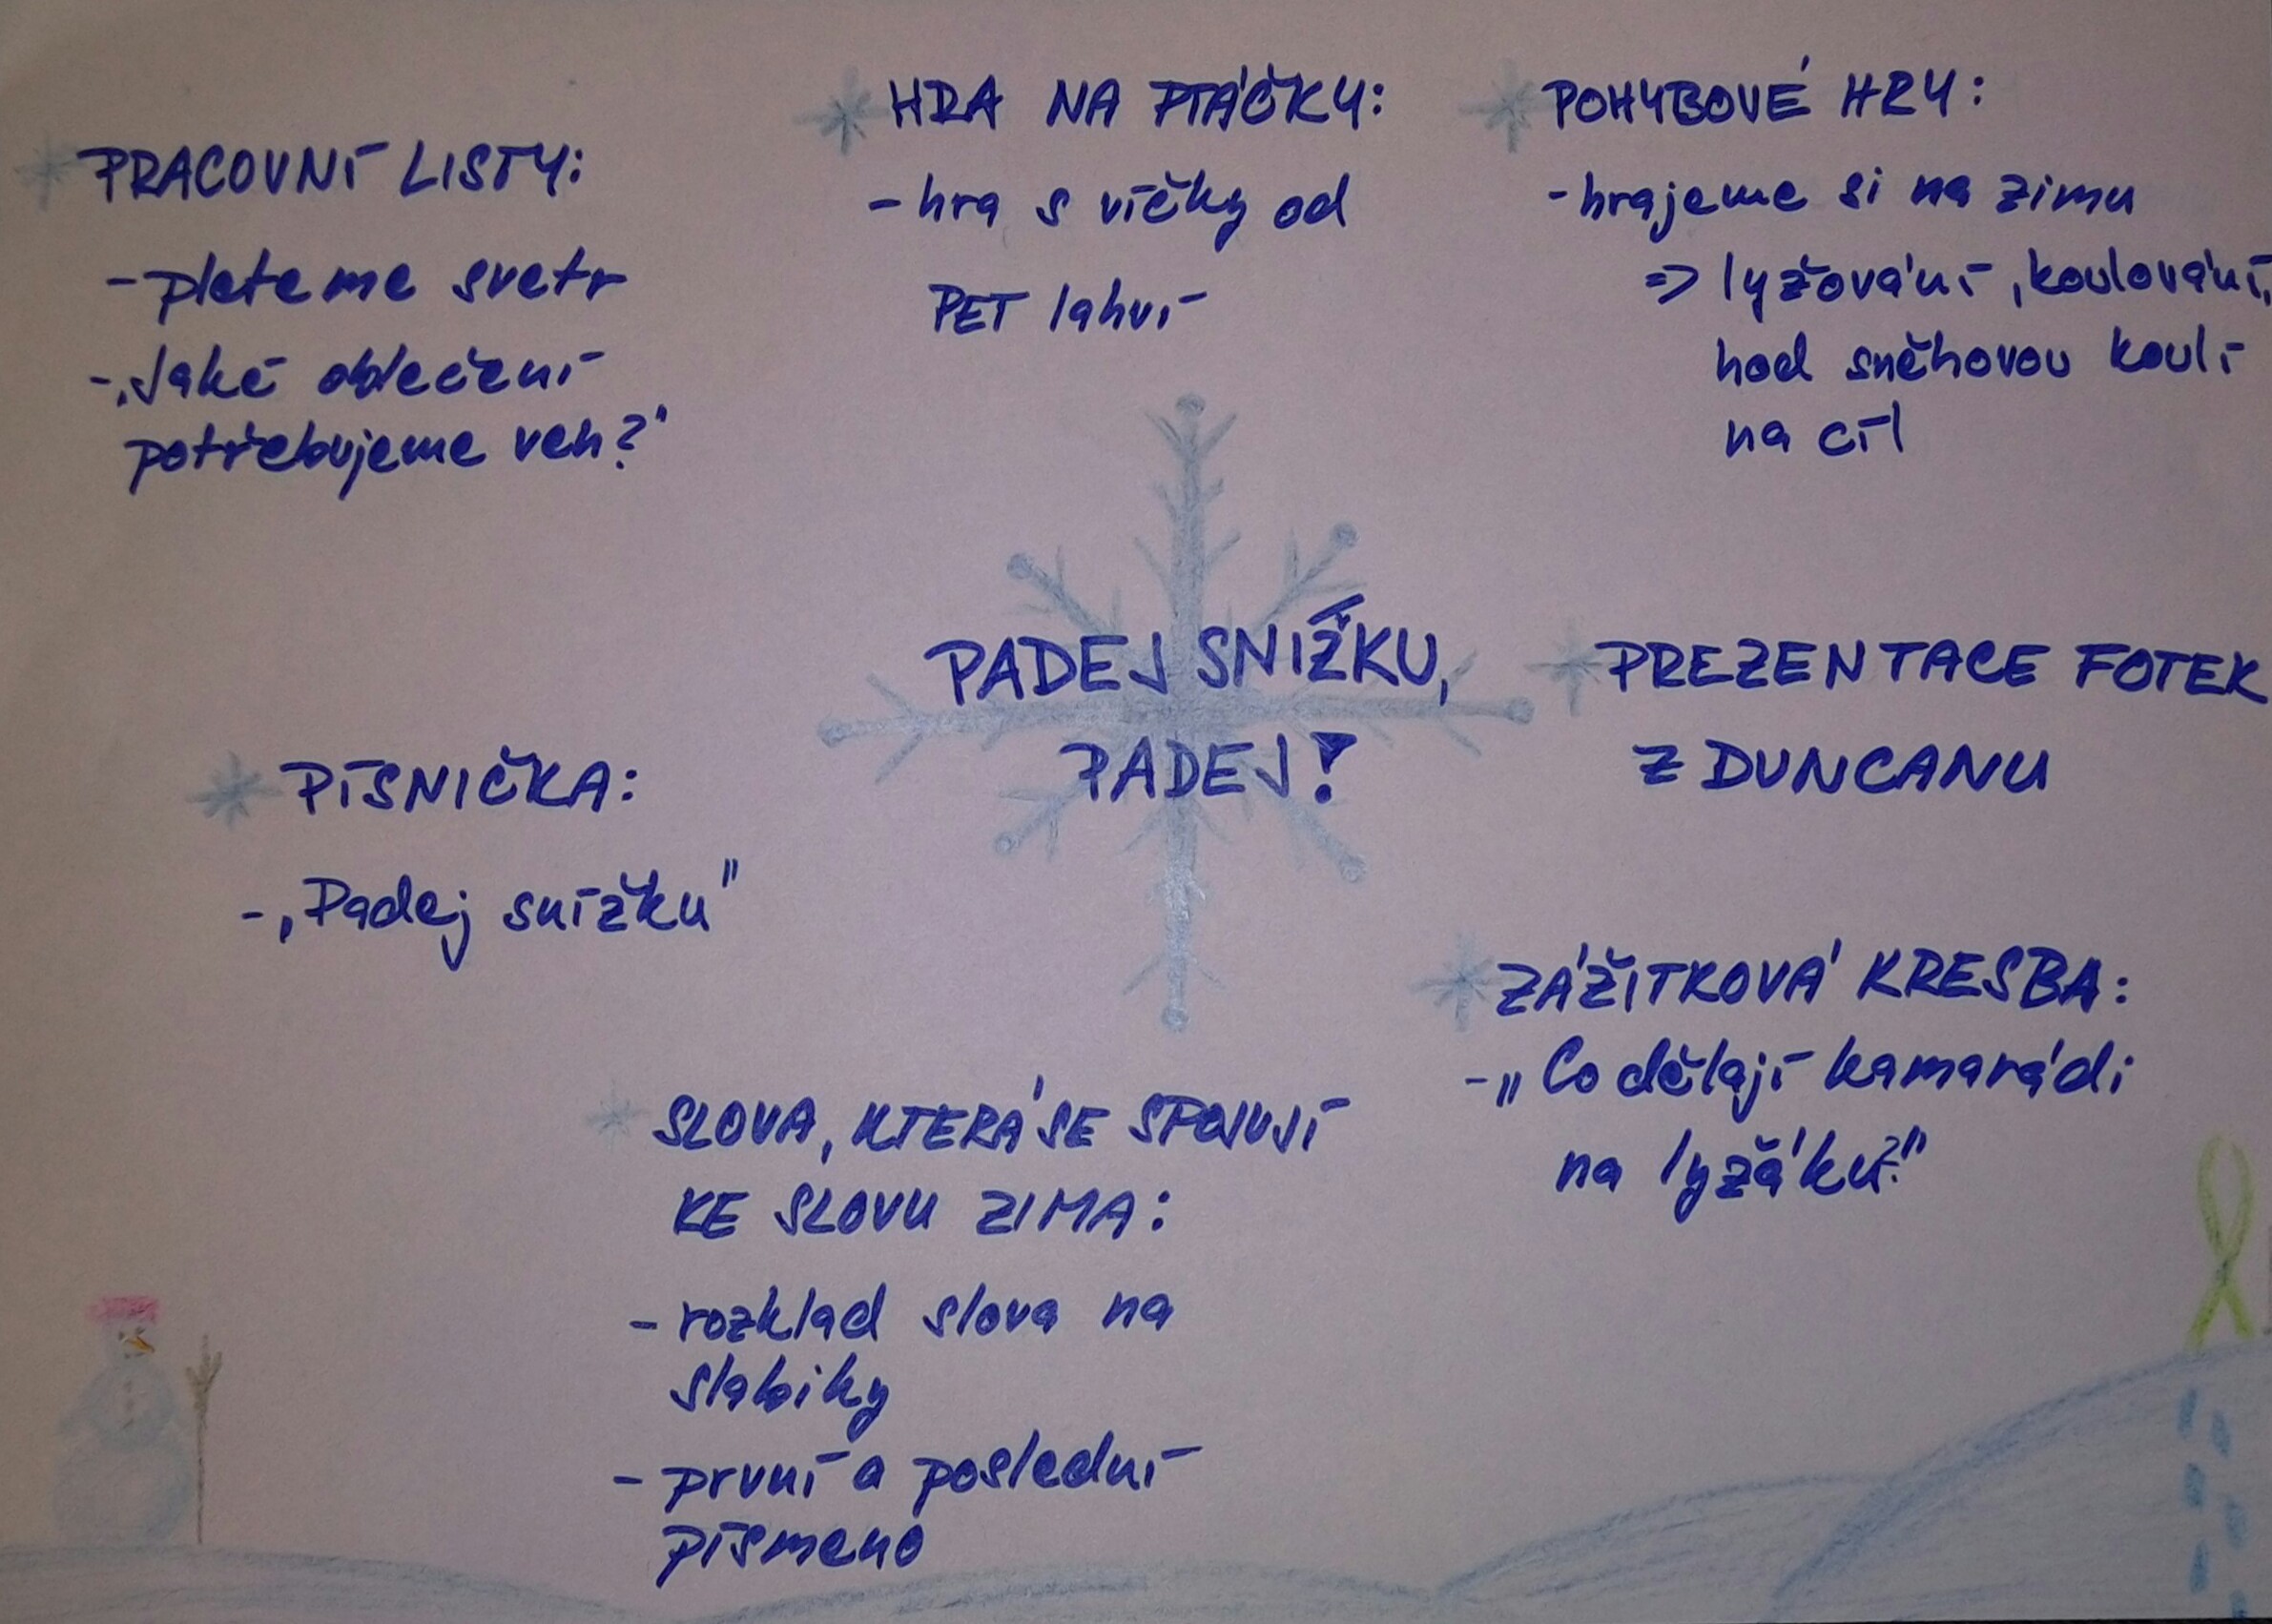 PRACOVNÍ LISTY:
- pleteme svetr
- „Jaké oblečení
potřebujeme ven?"
HRA NA PTÁČKY:
- hra s víčky od
PET lahví
POHYBOVÉ HRY:
- hrajeme si na zimu
=> lyžování, koulování,
hod sněhovou koulí
na cíl
PADEJ SNÍŽKU,
PADEJ!
PREZENTACE FOTEK
Z DUNCANU
PÍSNIČKA:
- „Padej snížku"
ZÁŽITKOVÁ KRESBA:
- „Co dělají kamarádi
na lyžáku?"
SLOVA, KTERÁ SE SPOJUJÍ
KE SLOVU ZIMA:
- rozklad slova na
slabiky
- první a poslední
písmeno